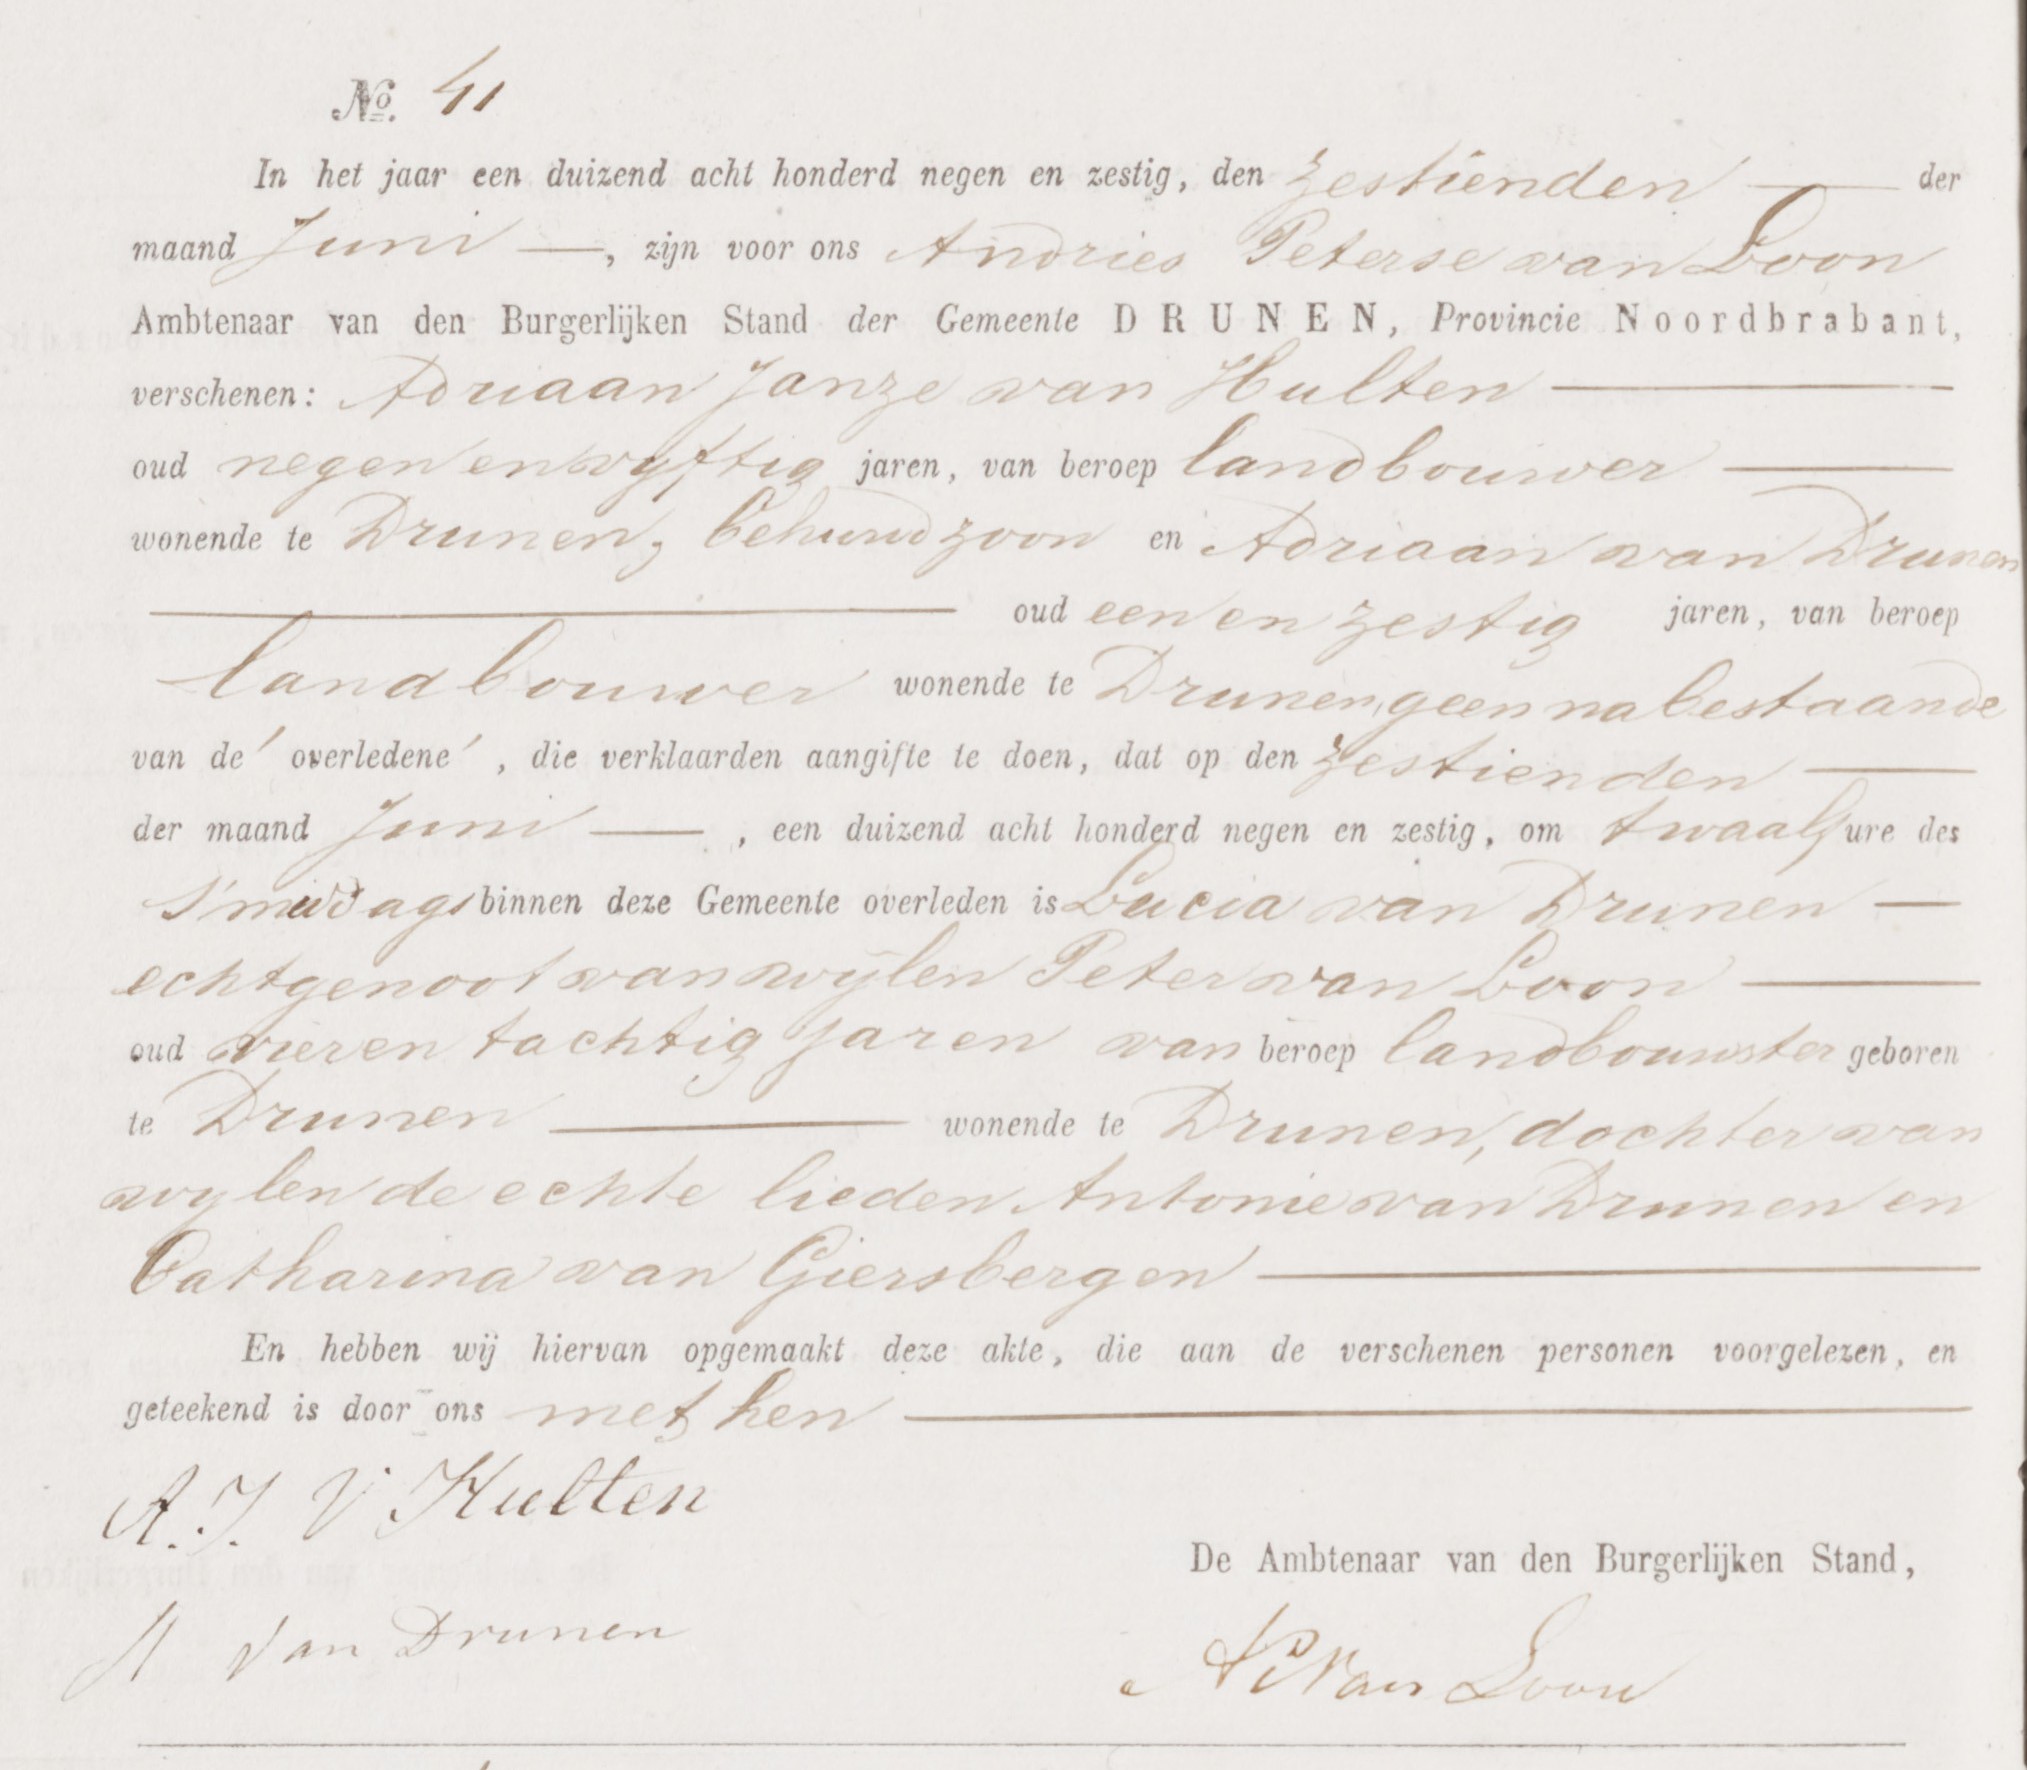 No. 41
In het jaar een duizend acht honderd negen en zestig, den zestienden — der
maand Juni —, zijn voor ons Andries Peterse van Loon
Ambtenaar van den Burgerlijken Stand der Gemeente DRUNEN, Provincie Noordbrabant,
verschenen: Adriaan Janze van Hulten —
oud negen en vyftig jaren, van beroep landbouwer —
wonende te Drunen, behuwdzoon en Adriaan van Drunen
— oud een en zestig jaren, van beroep
landbouwer wonende te Drunen, geen nabestaande
van de overledene, die verklaarden aangifte te doen, dat op den zestienden —
der maand Juni —, een duizend acht honderd negen en zestig, om twaalf ure des
s'middags binnen deze Gemeente overleden is Lucia van Drunen —
echtgenoot van wijlen Peter van Loon —
oud vier en tachtig jaren van beroep landbouwster geboren
te Drunen — wonende te Drunen, dochter van
wylen de echte lieden Antonie van Drunen en
Catharina van Giersbergen —
En hebben wij hiervan opgemaakt deze akte, die aan de verschenen personen voorgelezen, en
geteekend is door ons met hen —
A. J. V Hulten
De Ambtenaar van den Burgerlijken Stand,
A van Drunen
A P van Loon